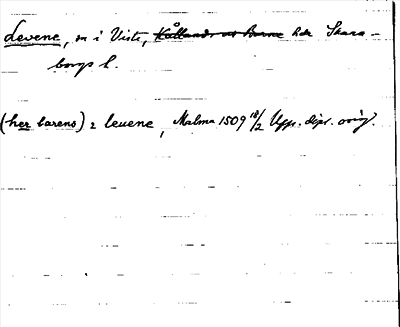 Levene, sn i Viste, Kållands och Barne hdr Skara-
borgs l.
(her larens) i leuene, Malma 1509 18/2 Upps. dipl. orig.